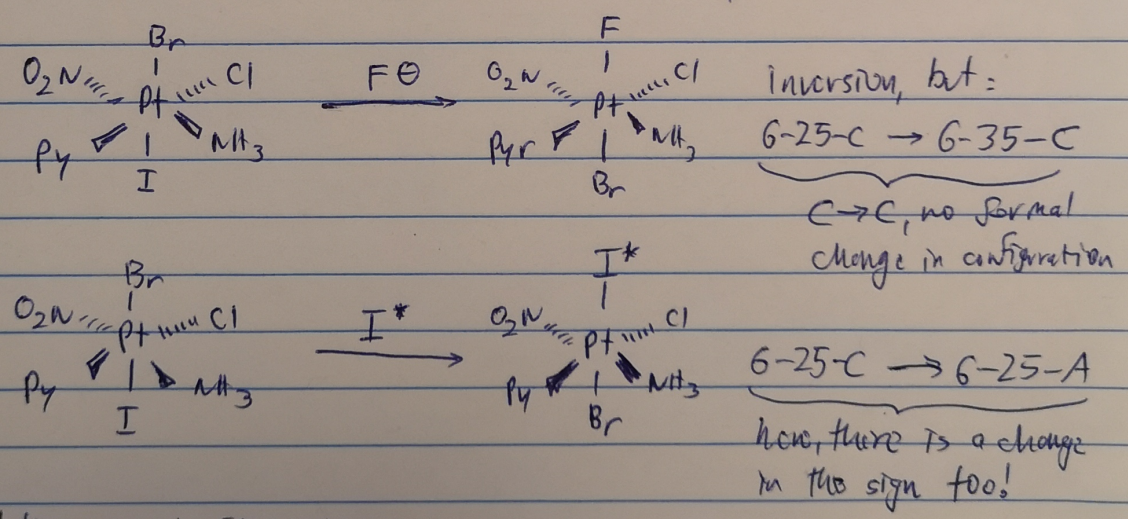 Br
O₂N Pt Cl
Py I NH₃
F⊖
F
O₂N Pt Cl
Pyr Br NH₃
inversion, but:
6-25-C → 6-35-C
C→C, no formal
change in configuration
Br
O₂N Pt Cl
Py I NH₃
I*
I*
O₂N Pt Cl
Py Br NH₃
6-25-C → 6-25-A
here, there is a change
in the sign too!